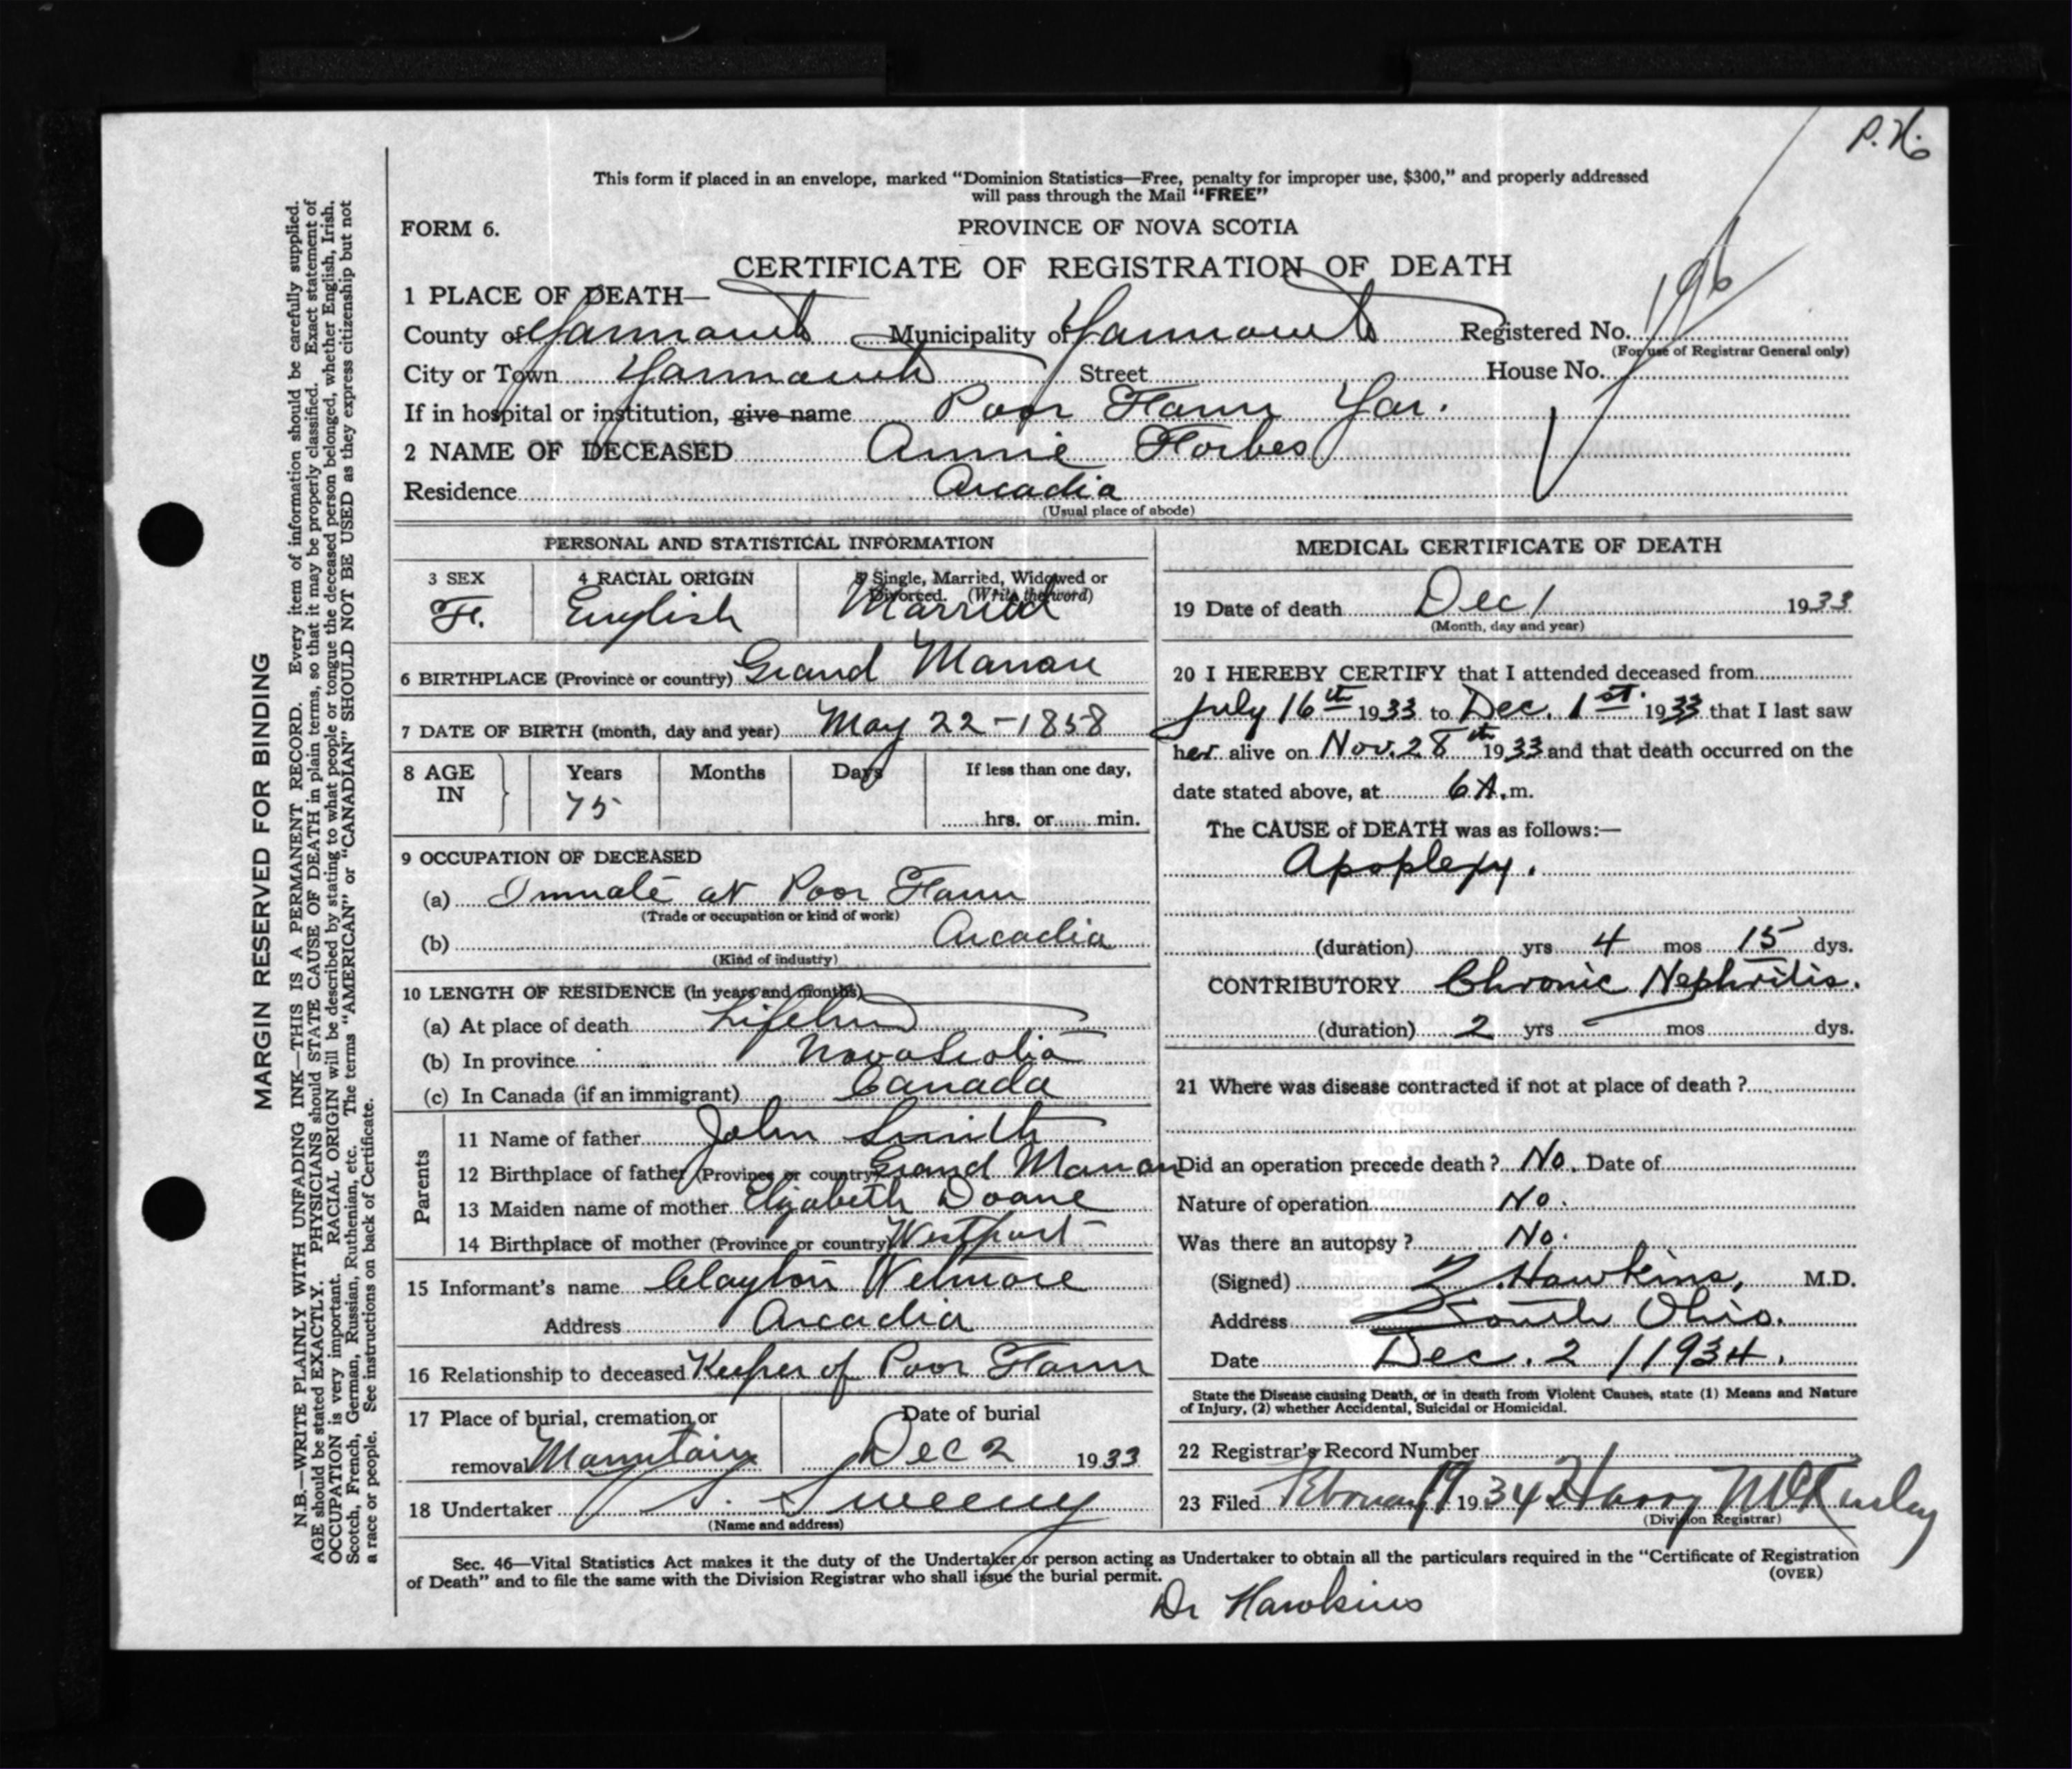 P. H.
This form if placed in an envelope, marked “Dominion Statistics—Free, penalty for improper use, $300,” and properly addressed
will pass through the Mail “FREE”
FORM 6.
PROVINCE OF NOVA SCOTIA
CERTIFICATE OF REGISTRATION OF DEATH
1 PLACE OF DEATH—
County of Yarmouth Municipality of Yarmouth Registered No. 196
(For use of Registrar General only)
City or Town Yarmouth Street House No.
If in hospital or institution, give name Poor Farm Yar.
2 NAME OF DECEASED Annie Forbes
Residence Arcadia
(Usual place of abode)
PERSONAL AND STATISTICAL INFORMATION
3 SEX 4 RACIAL ORIGIN 5 Single, Married, Widowed or
Divorced. (Write the word)
F. English Married
6 BIRTHPLACE (Province or country) Grand Manan
7 DATE OF BIRTH (month, day and year) May 22 - 1858
8 AGE IN Years Months Days If less than one day,
75
hrs. or min.
9 OCCUPATION OF DECEASED
(a) Inmate at Poor Farm
(Trade or occupation or kind of work)
(b) Arcadia
(Kind of industry)
10 LENGTH OF RESIDENCE (in years and months)
(a) At place of death Lifetime
(b) In province Nova Scotia
(c) In Canada (if an immigrant) Canada
Parents
11 Name of father John Smith
12 Birthplace of father (Province or country) Grand Manan
13 Maiden name of mother Elizabeth Doane
14 Birthplace of mother (Province or country) Westport
15 Informant's name Clayton Wetmore
Address Arcadia
16 Relationship to deceased Keeper of Poor Farm
17 Place of burial, cremation or Date of burial
removal Mountain Dec 2 1933
18 Undertaker Sweeny
(Name and address)
MEDICAL CERTIFICATE OF DEATH
19 Date of death Dec 1 1933
(Month, day and year)
20 I HEREBY CERTIFY that I attended deceased from
July 16th 1933 to Dec. 1st. 1933 that I last saw
her alive on Nov. 28th 1933 and that death occurred on the
date stated above, at 6 A.m.
The CAUSE of DEATH was as follows:—
Apoplexy.
(duration) yrs 4 mos 15 dys.
CONTRIBUTORY Chronic Nephritis.
(duration) 2 yrs mos dys.
21 Where was disease contracted if not at place of death ?
Did an operation precede death ? No. Date of
Nature of operation No.
Was there an autopsy ? No.
(Signed) Hawkins, M.D.
Address South Ohio.
Date Dec. 2 / 1934.
State the Disease causing Death, or in death from Violent Causes, state (1) Means and Nature
of Injury, (2) whether Accidental, Suicidal or Homicidal.
22 Registrar's Record Number
23 Filed February 19 1934 Harry McKinley
(Division Registrar)
Sec. 46—Vital Statistics Act makes it the duty of the Undertaker or person acting as Undertaker to obtain all the particulars required in the “Certificate of Registration
of Death” and to file the same with the Division Registrar who shall issue the burial permit.
(OVER)
Dr Hawkins
MARGIN RESERVED FOR BINDING
N.B.—WRITE PLAINLY WITH UNFADING INK—THIS IS A PERMANENT RECORD. Every item of information should be carefully supplied.
AGE should be stated EXACTLY. PHYSICIANS should STATE CAUSE OF DEATH in plain terms, so that it may be properly classified. Exact statement of
OCCUPATION is very important. RACIAL ORIGIN will be described by stating to what people or tongue the deceased person belonged, whether English, Irish,
Scotch, French, German, Russian, Ruthenian, etc. The terms “AMERICAN” or “CANADIAN” SHOULD NOT BE USED as they express citizenship but not
a race or people. See instructions on back of Certificate.